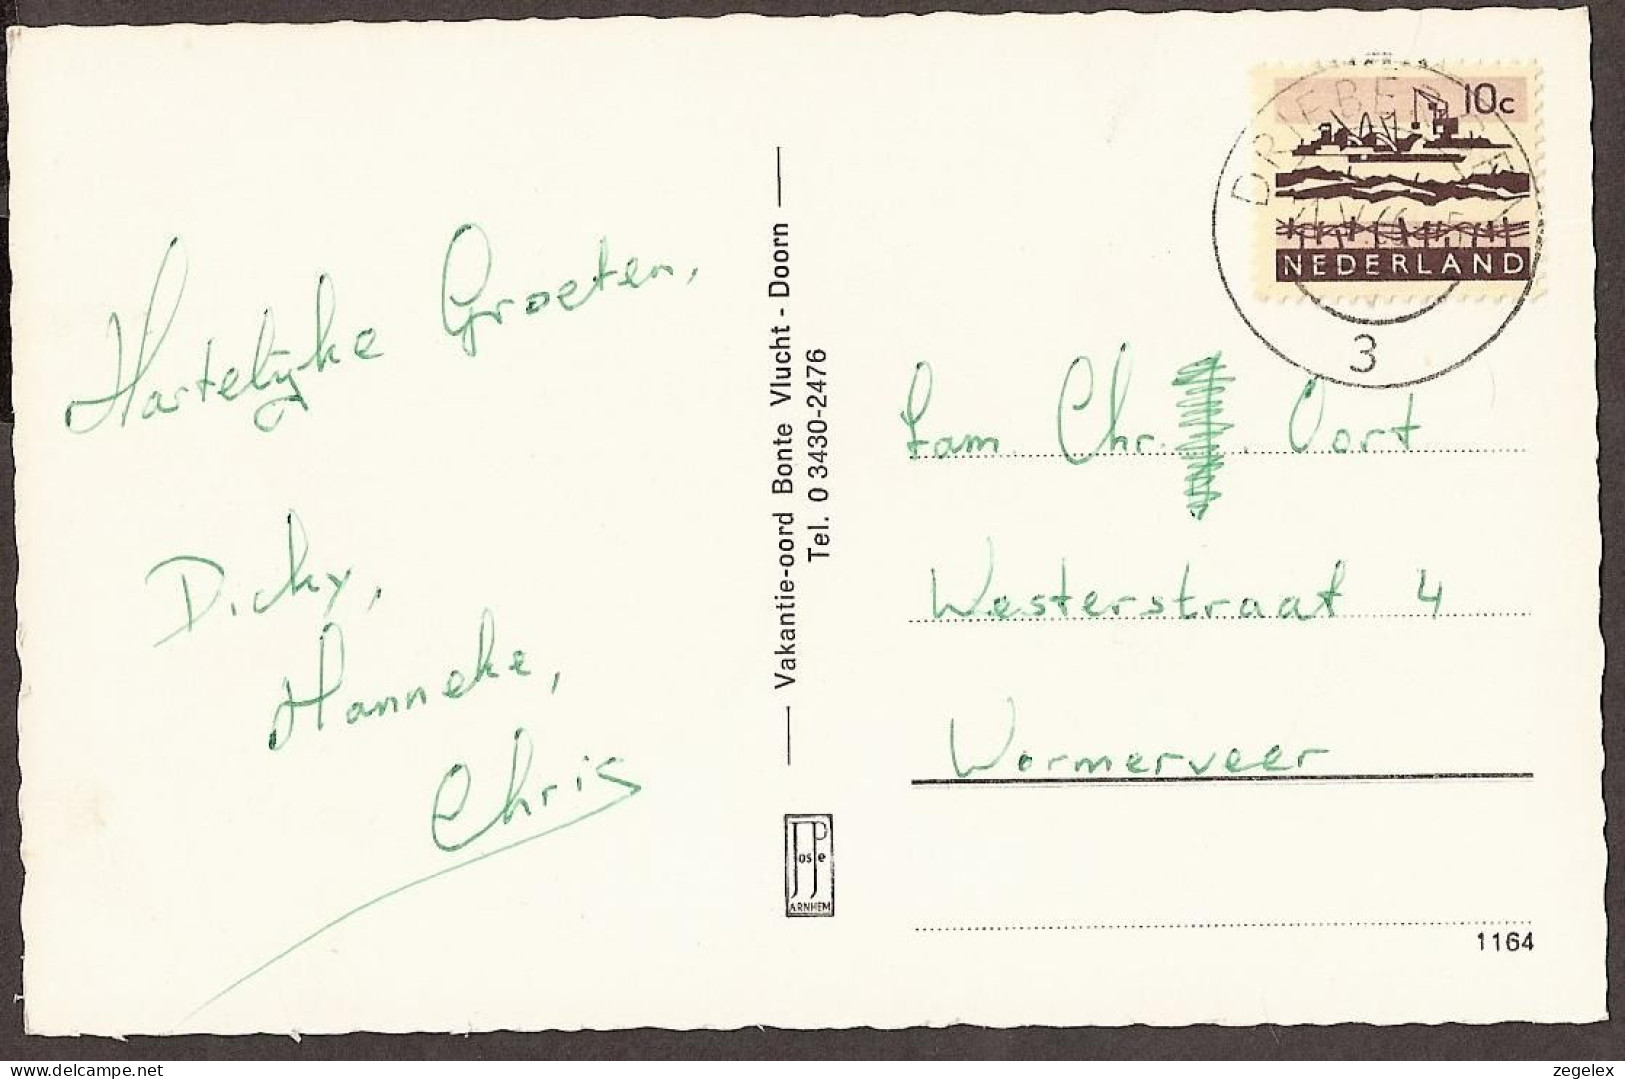 Hartelijke Groeten,
Dicky,
Hanneke,
Chris
Vakantie-oord Bonte Vlucht - Doorn
Tel. 0 3430-2476
JosPe
ARNHEM
10c
NEDERLAND
3
Fam. Chr. Oort
Westerstraat 4
Wormerveer
1164
www.delcampe.net
zegelex